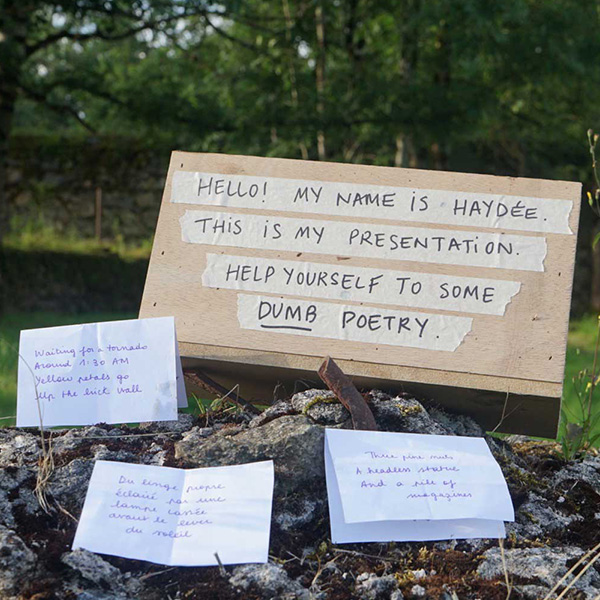 HELLO! MY NAME IS HAYDÉE.
THIS IS MY PRESENTATION.
HELP YOURSELF TO SOME
DUMB POETRY.
Waiting for a tornado
Around 1:30 AM
Yellow petals go
Up the brick wall
Du linge propre
éclairé par une
lampe cassée
avant le lever
du soleil
Three pine nuts
A headless statue
And a pile of
magazines